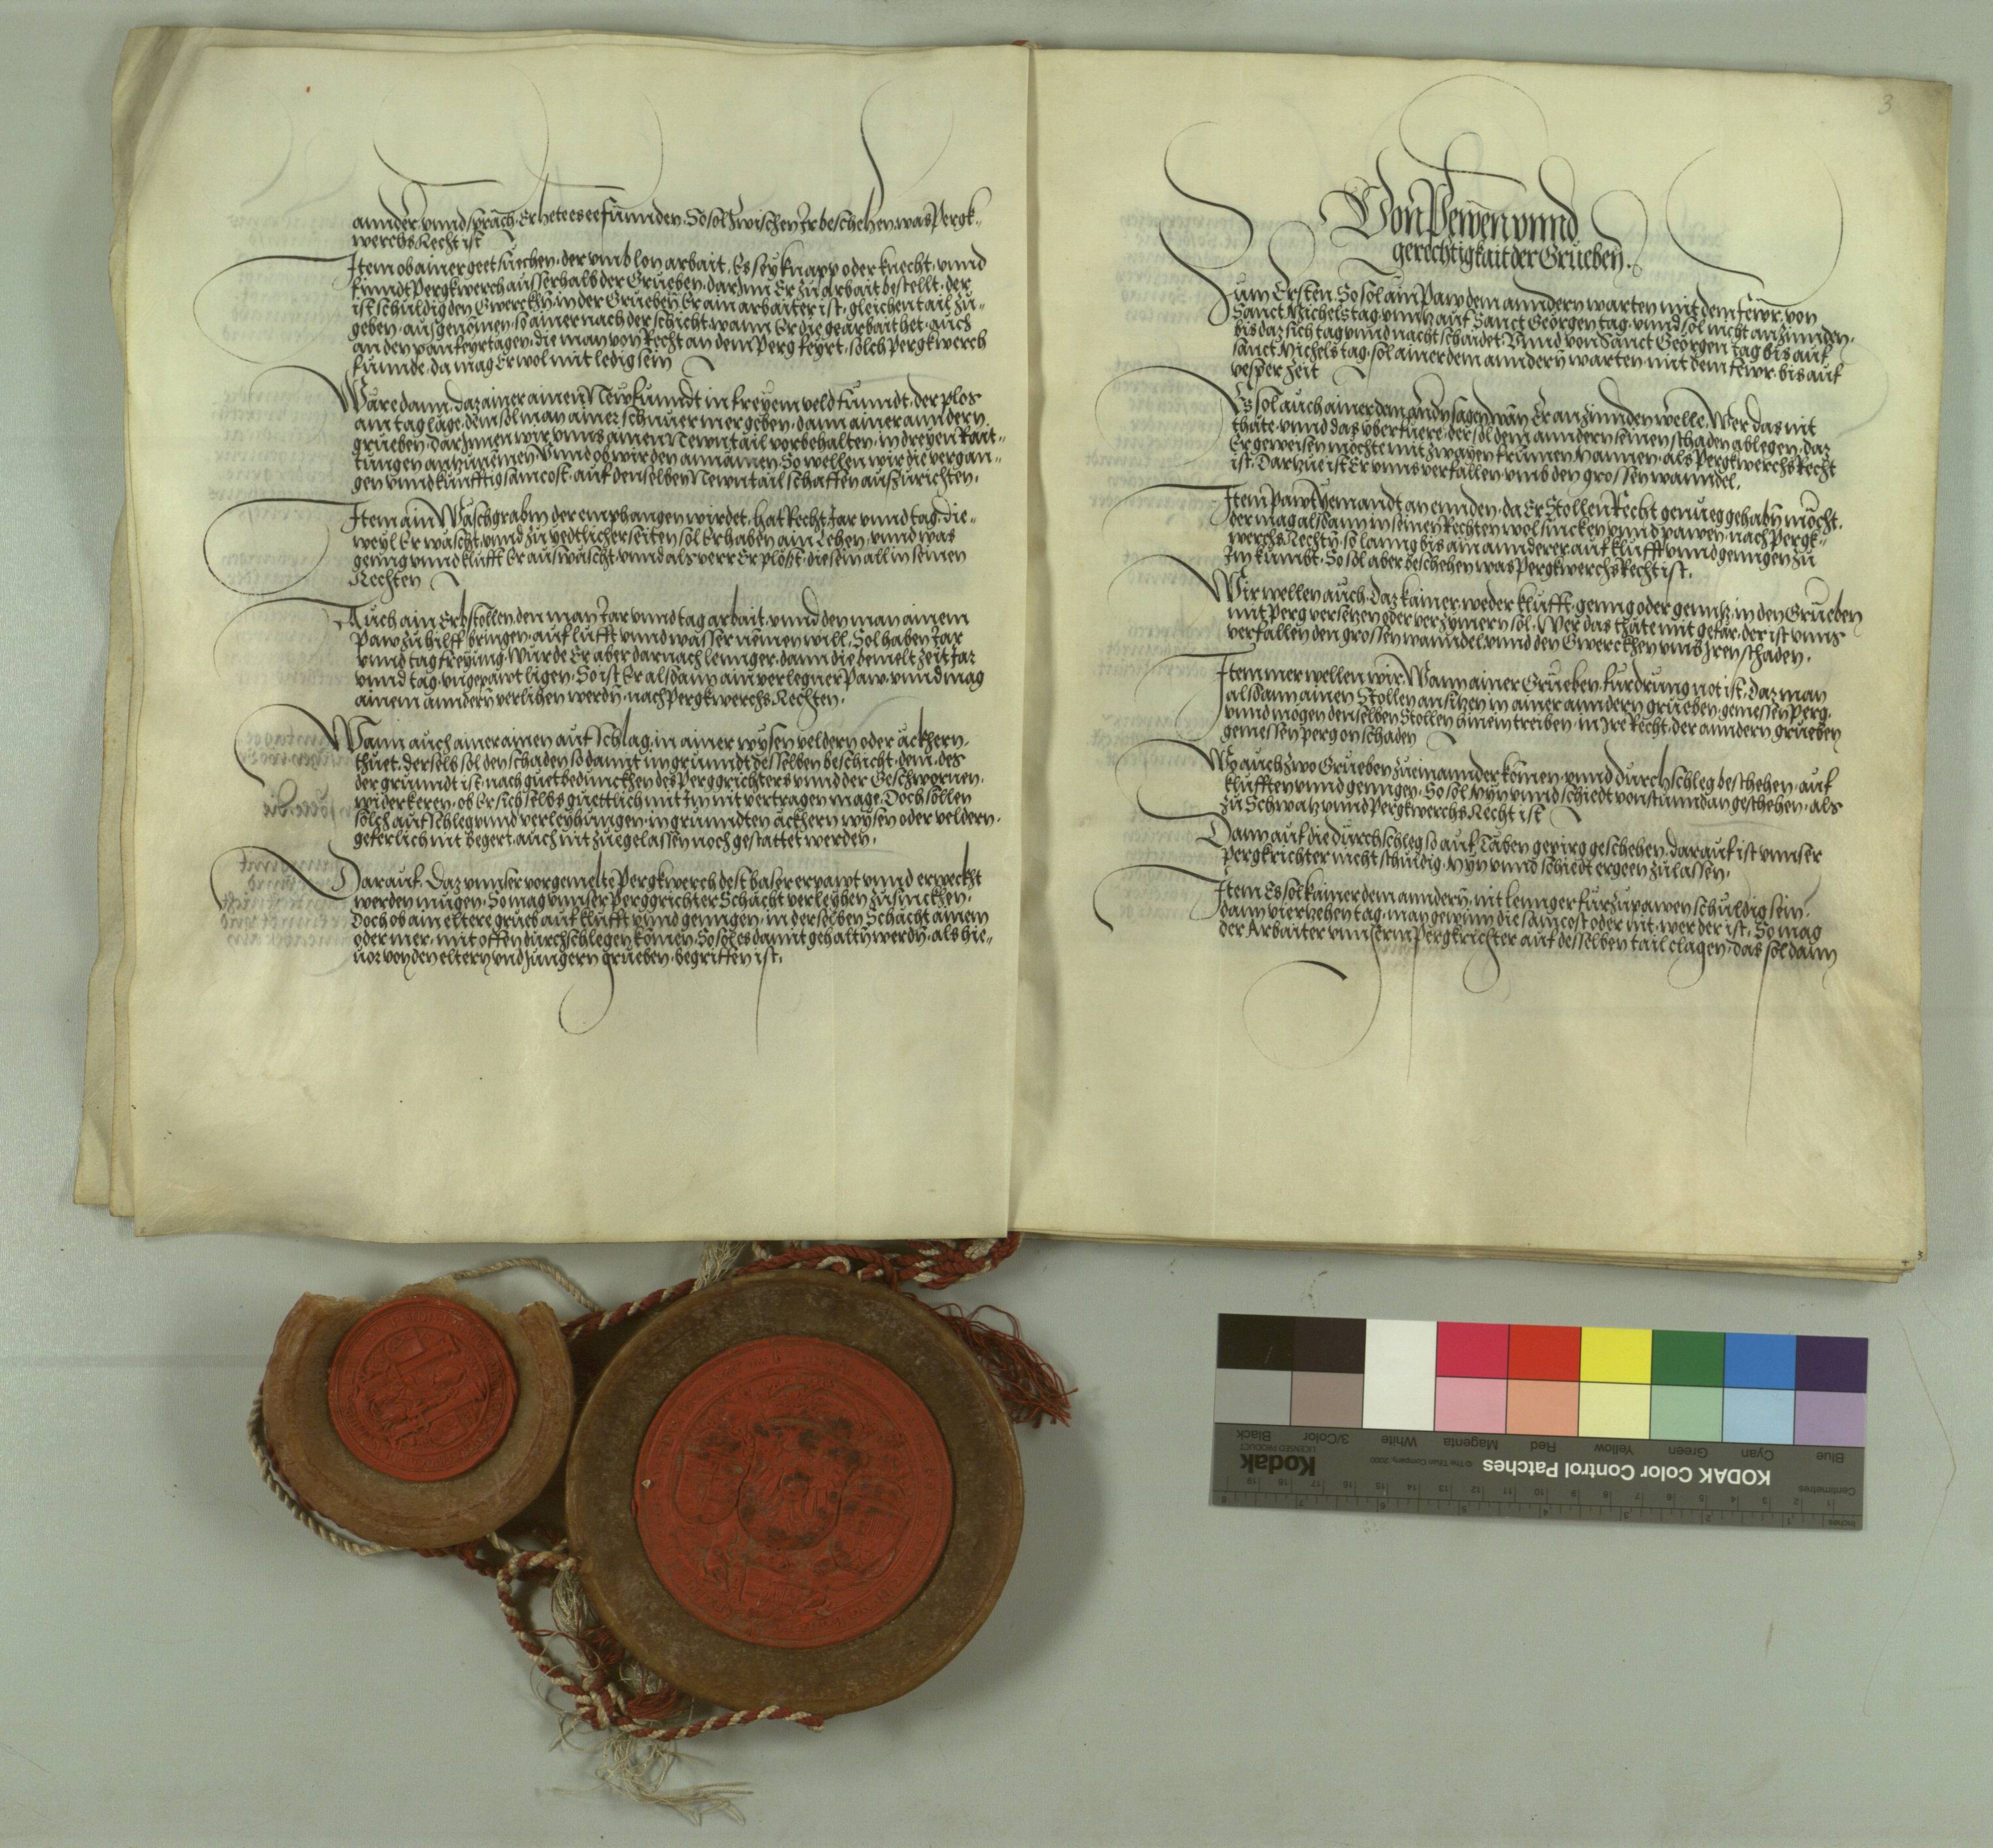 annder vnnd sprach Er hete es ee funnden. So sol zwischen Ir beschehen was Pergk-
werchs Recht ist
Item ob ainer geet suechen, der vmb lon arbait. Es sey knapp oder knecht, vnnd
funndt Pergkwerch ausserhalb der Grueben, darInn Er zu arbait bestellt, der
ist schuldig den Gwerckhn, in der Grueben Er ain arbaiter ist, gleichen tail zu-
geben, ausgenomen, so ainer nach der schicht, wann Er die gearbait het, auch
an den panfeyrtagen, die man von Recht an dem Perg feyrt, solch Pergkwerch
funnde, da mag Er wol mit ledig sein
Ware dann, daz ainer ainen Newfunndt in freyem veld funndt, der plos
am tag lage, dem sol man ainer schnuer mer geben, dann ainer anndern
grueben, darInnen wir vnns ainen Newntail vorbehalten, in dreyen Rait-
tungen anzunemen, Vnnd ob wir den annamen, So wellen wir die vergan-
gen vnnd kunfftig samcost, auf denselben Newntail schaffen auszurichten.
Item ain Waschgrabm der emphangen wirdet, hat Recht Jar vnnd tag, die-
weyl Er wascht, vnnd zu yedtlicher seiten sol Er haben ain Lehen, vnnd was
genng vnnd klufft Er auswascht, vnnd als verr Er plost, die sein all in seinen
Rechten
Auch ain Erbstollen, den man Jar vnnd tag arbait, vnnd den man ainem
Paw zu hilff bringen, auf lufft vnnd wasser nemen will, Sol haben Jar
vnnd tag freyung, Wurde Er aber darnach lennger, dann die bemelt zeit Jar
vnnd tag, vngepawt ligen, So ist Er alsdann ain verlegner Paw, vnnd mag
ainem anndern verlihen werdn, nach Pergkwerchs Rechten.
Wann auch ainer ainen aufschlag, in ainer wysen veldern oder ackhern,
thuet, derselb sol den schaden so damit im grunndt desselben beschicht, dem, des
der grunndt ist, nach guetbedunckhen des Perggrichters vnnd der Geschwornen,
widerkeren, ob Er sich selbs guettlich mit Im nit vertragen mage, Doch sollen
solch aufschleg vnnd verleyhungen, in grunndten ackhern wysen oder veldern,
geferlich nit begert, auch nit zuegelassen noch gestattet werden.
Darauf, Daz vnnser vorgemelte Pergkwerch dest baser erpawt vnnd erweckht
werden mugen, So mag vnnser Perggrichter Schacht verleyhen zu sinckhen,
Doch ob ain eltere grueb auf klufft vnnd genngen, in derselben Schacht ainem
oder mer, mit offen durchschlegen komen, So sol es damit gehaltn werdn, als hie-
uor von den eltern vnd Jungern grueben, begriffen ist.
3
Von Pewen vnnd
gerechtigkait der Grueben.
Zum Ersten, So sol ain Paw dem anndern warten mit dem fewr, von
Sanct Michels tag, vnntz auf Sanct Georgen tag, vnnd sol nicht anzunnden,
bis daz sich tag vnnd nacht schaidet, Vnnd von Sanct Georgen tag bis auf
sanct Michels tag, sol ainer dem anndern warten, mit dem fewr, bis auf
vesper zeit
Es sol auch ainer dem andn sagen, wan Er anzunnden welle, Wer das nit
thate, vnnd das uberfuere, der sol dem anndern seinen schaden ablegen, daz
Er geweisen mochte mit zwayen frumen Mannen, als Pergkwerchs Recht
ist, Darzue ist Er vnns verfallen, vmb den grossen wanndel.
Item Pawt yemandt an ennden, da Er Stollen Recht genueg gehabn mocht,
der mag alsdann in seinen Rechten wol sincken vnnd pawen, nach Pergk-
werchs Rechtn, so lanng bis ain annderer auf klufft vnnd genngen zu
Im kumbt, So sol aber beschehen was Pergkwerchs Recht ist.
Wir wellen auch, Daz kainer weder klufft, genng oder gennz, in den Grueben
mit Perg versetzen oder verzymern sol, Wer das thate mit gefar, der ist vnns
verfallen den grossen wanndel, vnnd den Gwerckhen vmb Jren schaden.
Item mer wellen wir, Wann ainer Grueben, furdrung not ist, Daz man
alsdann ainen Stollen ansitzen in ainer anndern grueben, gemessen Perg,
vnnd mogen denselben Stollen hinein treiben, in Ire Recht, der anndern grueben
gemessen perg on schaden
Wo auch zwo Grueben zueinannder komen, vnnd durchschleg beschehen, auf
klufften vnnd genngen, So sol Myn vnnd schiedt von stunndan geschehen, als
zu Schwatz vnnd Pergkwerchs Recht ist
Dann auf die durchschleg so auf Taben gepirg geschehen, darauf ist vnnser
Pergkrichter nicht schuldig, Myn vnnd schiedt ergeen zulassen.
Item Es sol kainer dem anndern, nit lennger fur zupawen schuldig sein,
dann vierzehen tag, man gewinn die samcost oder nit, wer der ist, So mag
der Arbaiter vnnserm Pergkrichter auf desselben tail clagen, das sol dann
KODAK Color Control Patches
Kodak
LICENSED PRODUCT
© The Tiffen Company, 2000
Blue
Cyan
Green
Yellow
Red
Magenta
White
3/Color
Black
Centimetres
Inches